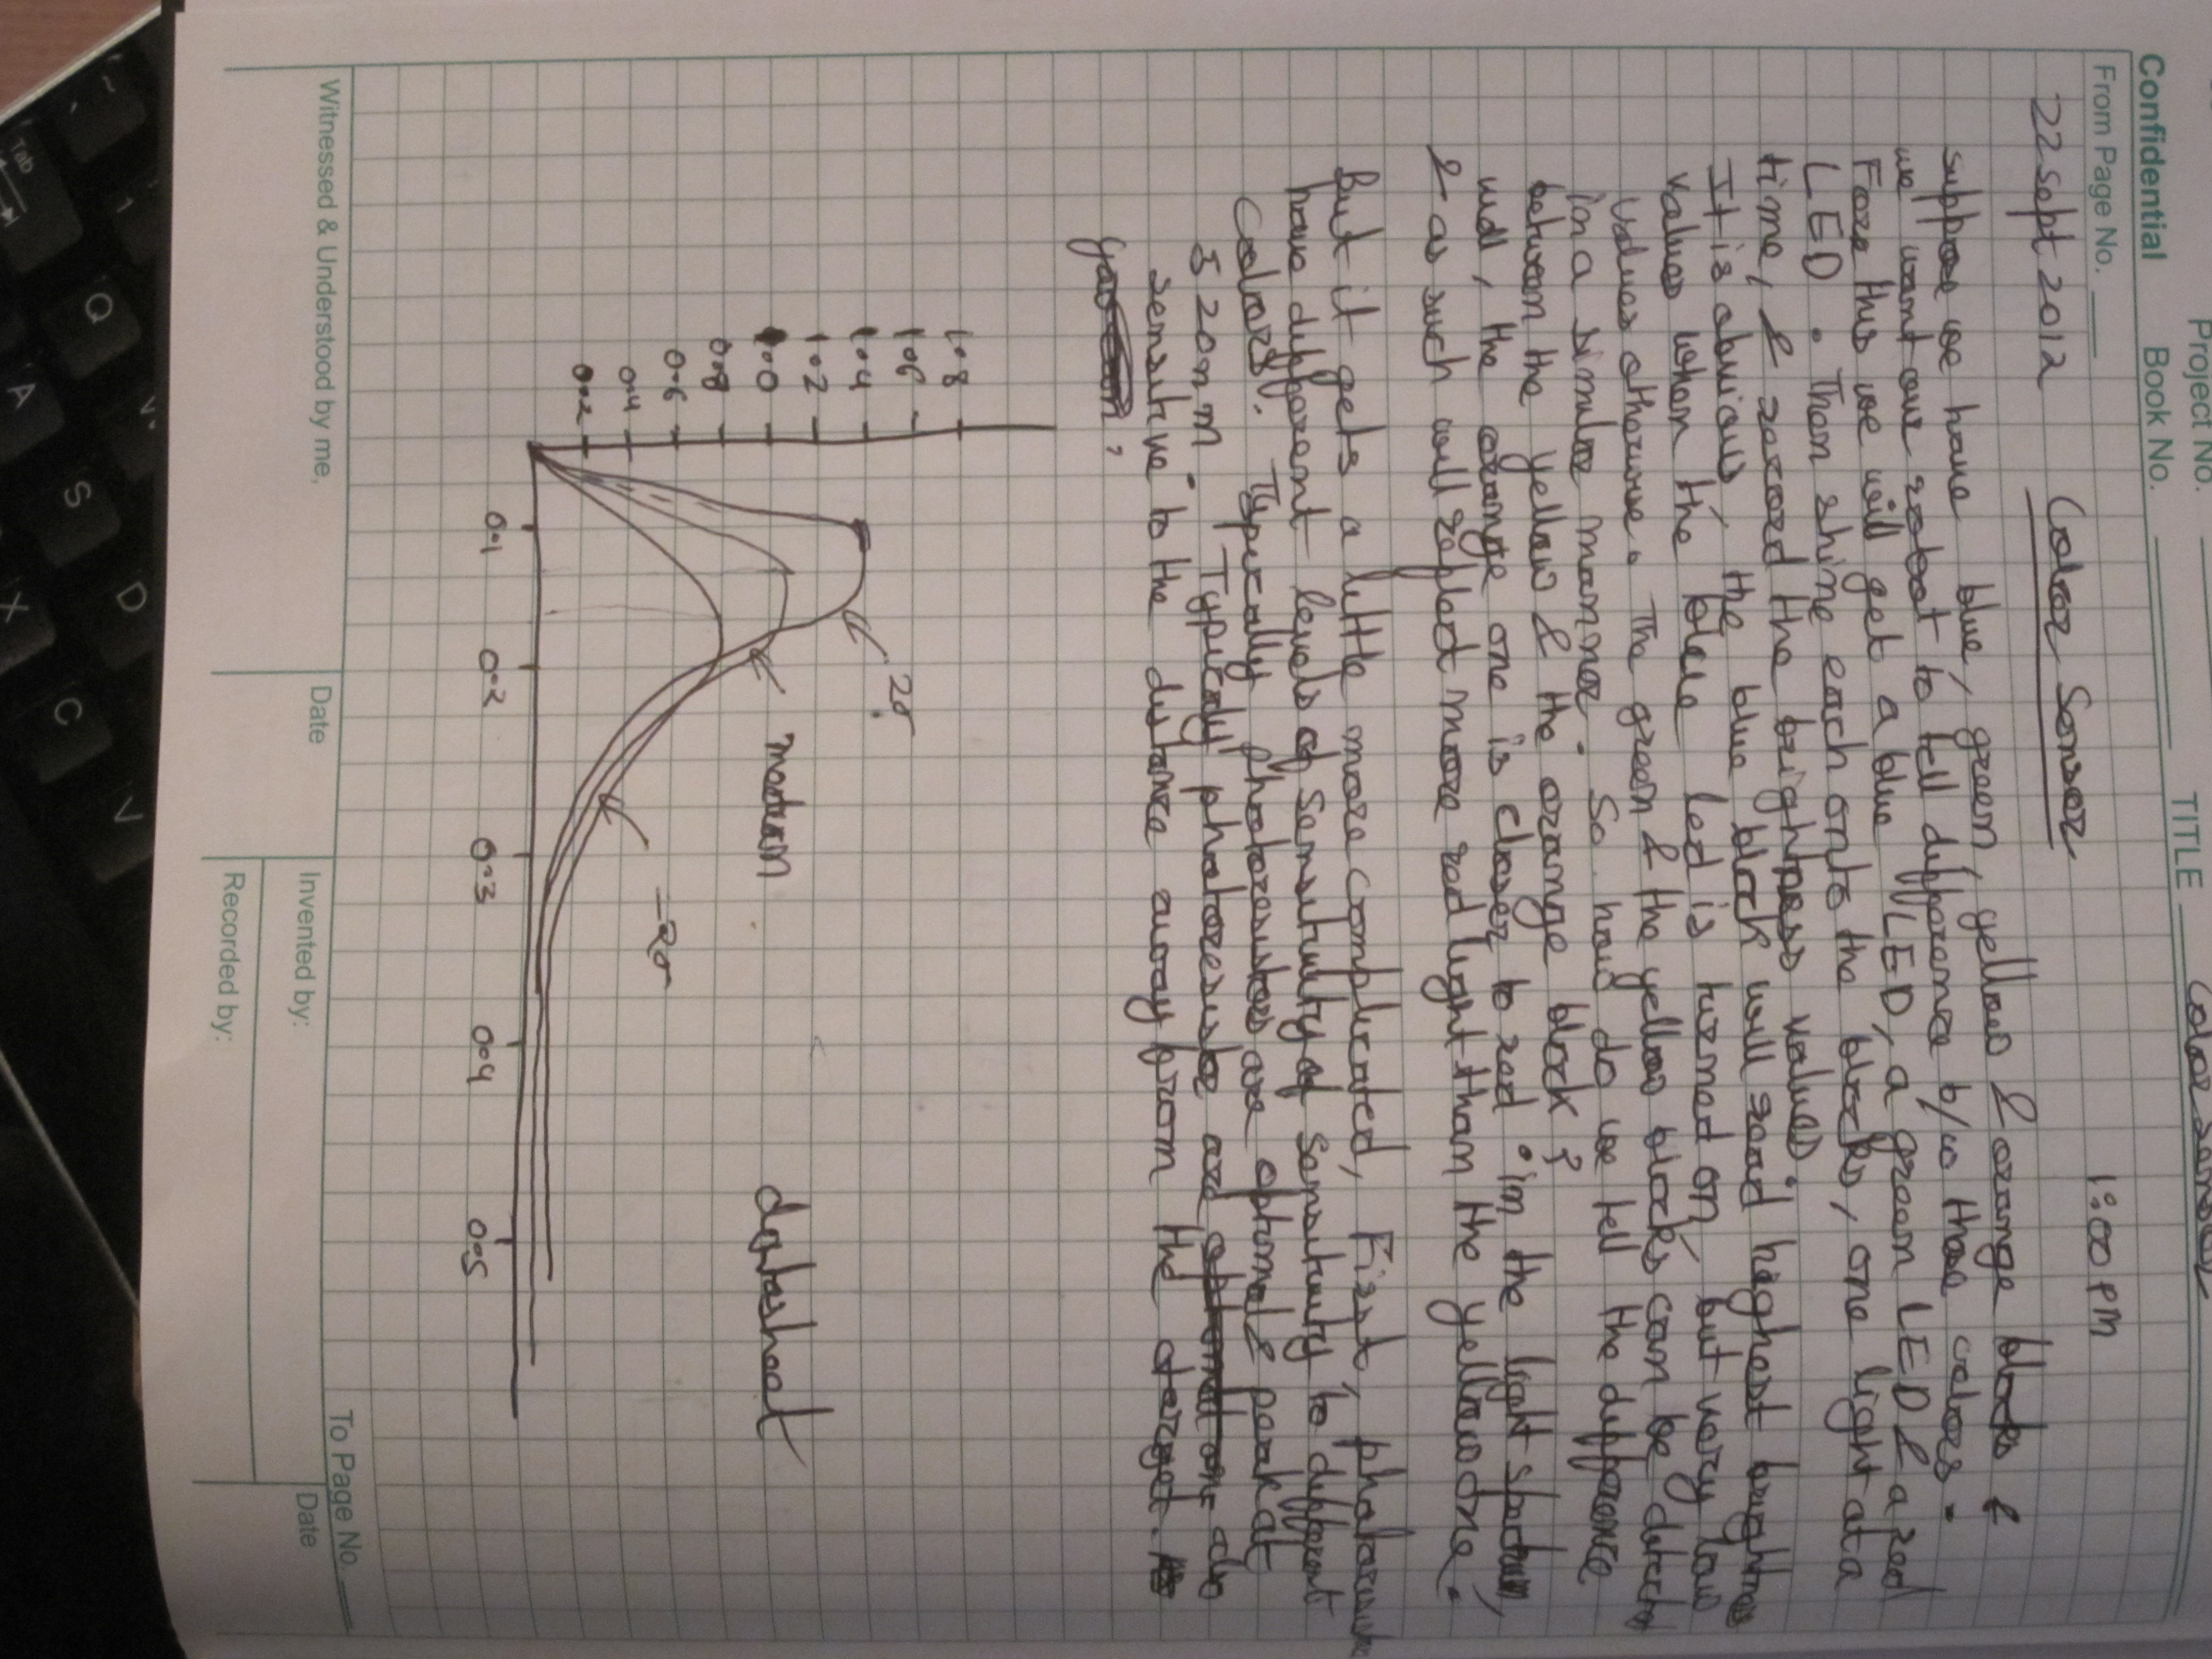 Project No.
TITLE Color Sensor
Confidential Book No.
From Page No.
1:00 PM
22 Sept 2012 Color Sensor
suppose we have blue, green, yellow & orange blocks &
we want our robot to tell difference b/w those colors.
For this we will get a blue LED, a green LED & a red
LED. Then shine each onto the blocks, one light at a
time, & record the brightness values.
It is obvious, the blue block will read highest brightness
values when the blue led is turned on, but very low
values otherwise. The green & the yellow blocks can be detected
in a similar manner. So how do we tell the difference
between the yellow & the orange block?
well, the orange one is closer to red in the light spectrum,
& as such will reflect more red light than the yellow one.
But it gets a little more complicated, First, photoresistors
have different levels of sensitivity of sensitivity to different
colors. Typically photoresistors are optimal & peak at
520nm. Typically photoresistor are optimal are also
sensitive to the distance away from the target.
you can ?
1.8
1.6
1.4
1.2
1.0
0.8
0.6
0.4
0.2
2σ
median
-2σ
datasheet
0.1 0.2 0.3 0.4 0.5
To Page No.
Witnessed & Understood by me,
Date
Invented by:
Date
Recorded by:
Tab
Q
1
A
S
D
X
C
V